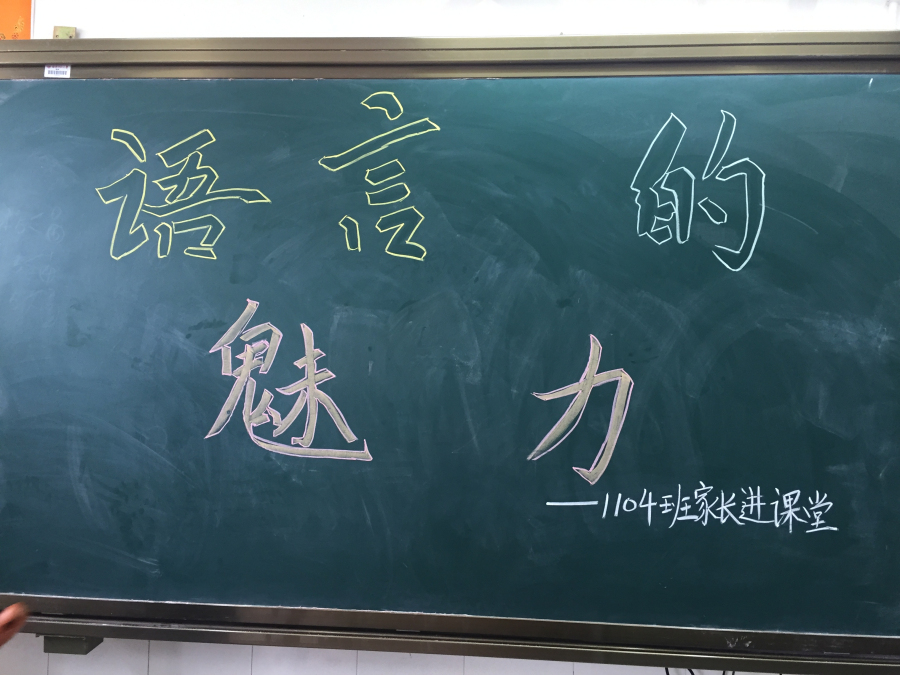 语言的
魅力
——1104班家长进课堂